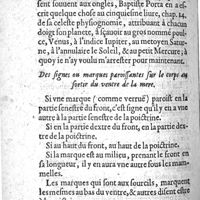 sent souuent aux ongles, Baptiste Porta en a es-
crit quelque chose au cinquiesme liure, chap. 14.
de sa celeste physiognomie, attribuant à chacun
doigt son planete, à sçauoir au gros nommé poul-
ce, Venus, à l'indice Iupiter, au moyen Satur-
ne, à l'annulaire le Soleil, & au petit Mercure; à
quoy ie n'ay voulu m'arrester pour maintenant.
Des signes ou marques paroissantes sur le corps au
sortir du ventre de la mere.
Si vne marque (comme verruë) paroist en la
partie senestre du front, c'est signe qu'il y en a vne
autre à la partie senestre de la poictrine.
Si en la partie dextre du front, en la partie dex-
tre de la poictrine.
Si au haut du front, au haut de la poictrine.
Si la marque est au milieu, prenant le front en
sa longueur, il y en aura vne autre sous les mam-
melles.
Les marques qui sont aux sourcils, marquent
les mesmes au bas du ventre, & autres disent estre